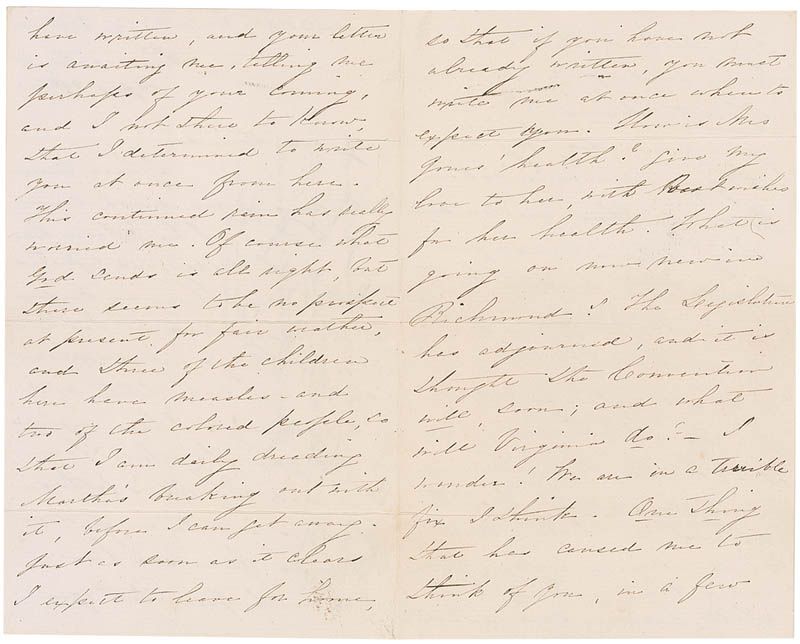 have written, and your letter
is awaiting me, telling me
perhaps of your coming,
and I not there to know,
that I determined to write
you at once from here.
This continued rain has really
worried me. Of course what
God sends is all right, but
there seems to be no prospect
at present, for fair weather,
and three of the children
here have measles - and
two of the colored people, so
that I am daily dreading
Martha's breaking out with
it, before I can get away.
Just as soon as it clears
I expect to leave for home,
so that if you have not
already written, you must
write me at once when to
expect you. How is Mrs
Jones' health? Give my
love to her, with best wishes
for her health. What is
going on now new in
Richmond? The Legislature
has adjourned, and it is
thought the Convention
will, soon; and what
will Virginia do? - I
wonder! We are in a terrible
fix I think. One thing
that has caused me to
think of you, in a few